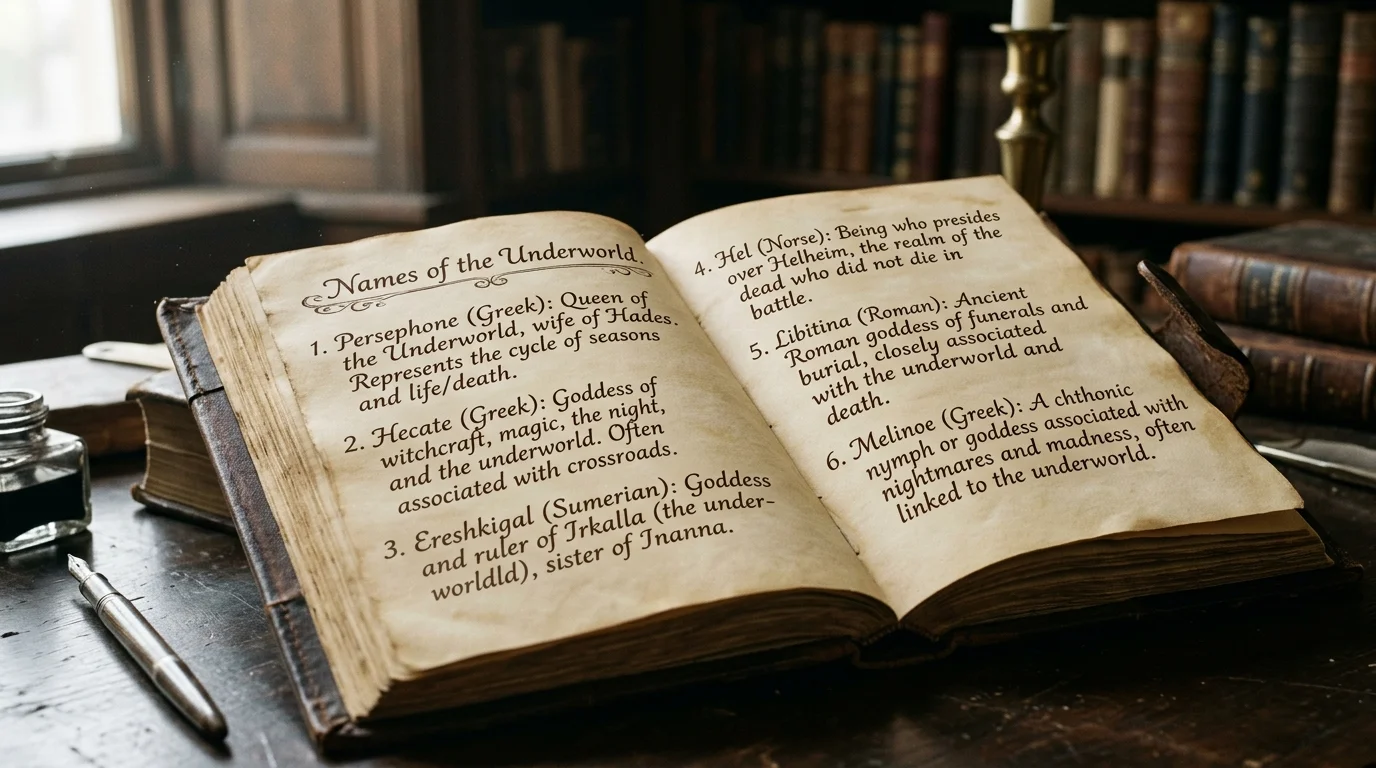 Names of the Underworld.
1. Persephone (Greek): Queen of
the Underworld, wife of Hades.
Represents the cycle of seasons
and life/death.
2. Hecate (Greek): Goddess of
witchcraft, magic, the night,
and the underworld. Often
associated with crossroads.
3. Ereshkigal (Sumerian): Goddess
and ruler of Irkalla (the under-
worldld), sister of Inanna.
4. Hel (Norse): Being who presides
over Helheim, the realm of the
dead who did not die in
battle.
5. Libitina (Roman): Ancient
Roman goddess of funerals and
burial, closely associated
with the underworld and
death.
6. Melinoe (Greek): A chthonic
nymph or goddess associated with
nightmares and madness, often
linked to the underworld.